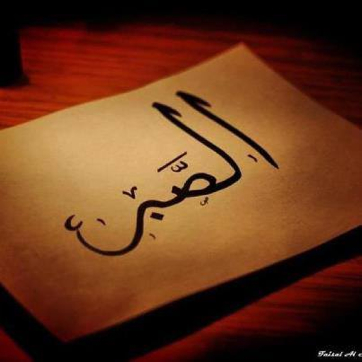 الصَّبر
Faisal Al